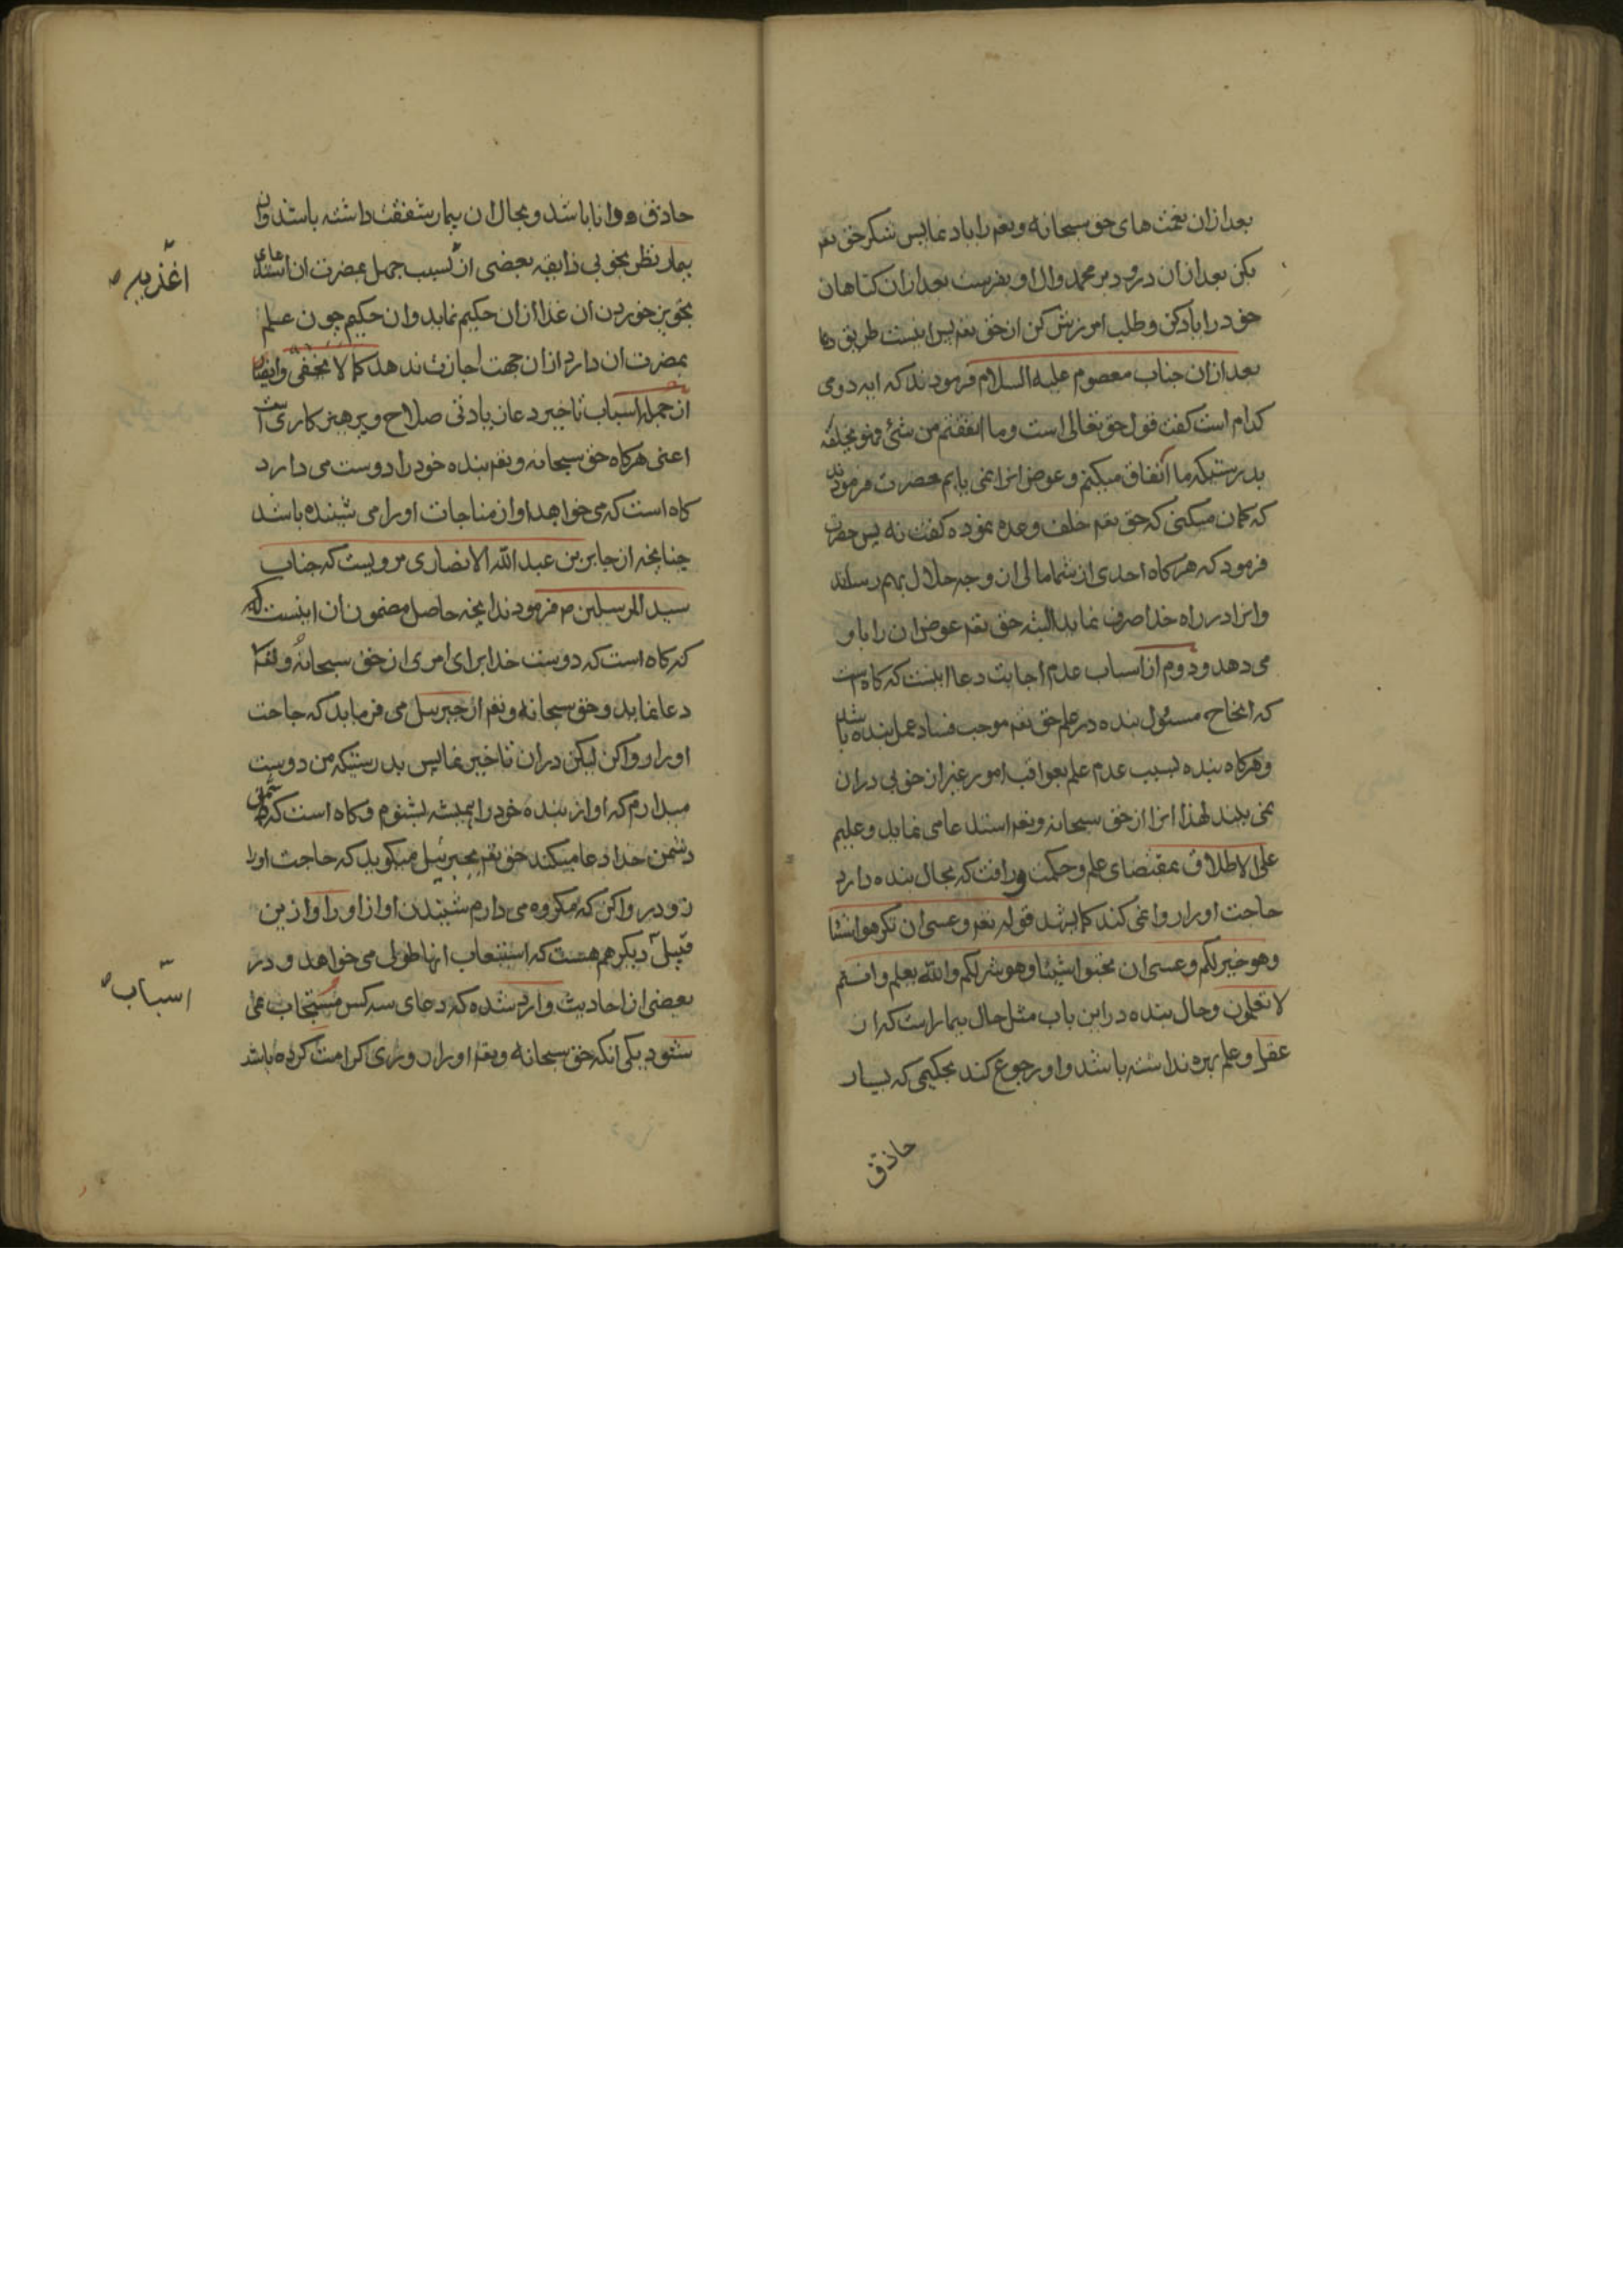 بعد ازان نعمت های حق سبحانه و تعم را یاد نمای پس شکر حق تعم
بکن بعد ازان درود بر محمد وال او بفرست بعد ازان کناهان
خود را یاد کن و طلب امرزش کن از حق تعم پس اینست طریق دعا
بعد ازان جناب معصوم علیه السلام فرمودند که ایه دومی
کدام است کفت قول حق تعالی است وما انفقتم من شئ فهو یخلفه
بدرستیکه ما انفاق میکنم و عوض انرا نمی یابم حضرت فرمودند
که کمان میکنی که حق تعم خلف وعده نموده کفت نه پس حضرت
فرمود که هرکاه احدی از شما مالی از وجه حلال بهم رساند
وانرا در راه خدا صرف نماید البته حق تعم عوض ان را باو
می دهد و دوم از اسباب عدم اجابت دعا اینست که کاه هست
که انجاح مسئول بنده در علم حق تعم موجب فساد عمل بنده باشد
و هرکاه بنده بسبب عدم علم بعواقب امور غیر از خوبی دران
نمی بیند لهذا انرا از حق سبحانه و تعم استدعا می نماید و علیم
علی الاطلاق بمقتضای علم و حکمت و رافت که بحال بنده دارد
حاجت او را روا نمی کند کما یرشد قوله تعم وعسی ان تکرهوا شیئا
وهو خیر لکم وعسی ان تحبوا شیئا وهو شر لکم والله یعلم وانتم
لا تعلمون وحال بنده در این باب مثل حال بیمار است که از
عقل و علم بهره نداشته باشد و او رجوع کند بحکیمی که بسیار
حاذق
حاذق و دانا باشد و بحال ان بیمار شفقت داشته باشد و ان
بیمار نظر بخوبی ذایقه بعضی از بسبب جهل بمضرت ان استدعای
تجویز خوردن ان غذا ازان حکیم نماید وان حکیم چون علم
بمضرت ان دارد ازان جهت اجازت ندهد کما لا یخفی وایضا
از جمله اسباب تاخیر دعا زیادتی صلاح و پرهیز کاری است
اعنی هرکاه حق سبحانه و تعم بنده خود را دوست می دارد
کاه است که می خواهد اواز مناجات او را می شنیده باشد
چنانچه از جابر بن عبد الله الانصاری مرویست که جناب
سید المرسلین م فرمودند انچه حاصل مضمون ان اینست که
که کاه است که دوست خدا برای امری از حق سبحانه و تعم
دعا نماید و حق سبحانه و تعم از جبرئیل می فرماید که حاجت
او را روا کن لیکن دران تاخیر نمای پس بدرستیکه من دوست
میدارم که اواز بنده خود را همیشه بشنوم و کاه است که دشمنی
دشمن خدا دعا میکند حق تعم بجبرئیل میکوید که حاجت او را
زود روا کن که مکروه می دارم شنیدن اواز او را و ازین
قبیل دیکر هم هست که استیعاب انها طولی می خواهد و در
بعضی از احادیث وارد شده که دعای سه کس مستجاب نمی
شود یکی انکه حق سبحانه و تعم او را روزی کرامت کرده باشد
اغذیه
اسباب